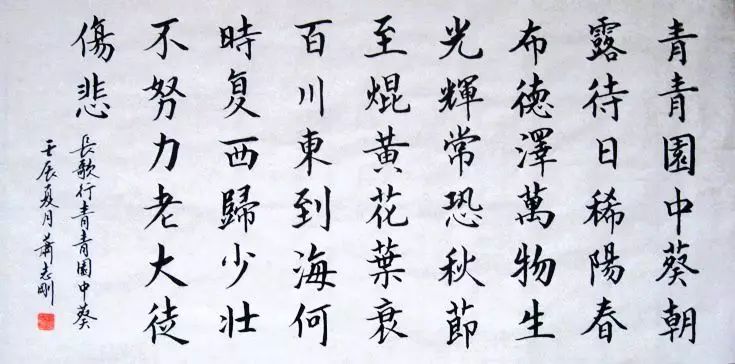 青青園中葵朝
露待日稀陽春
布德澤萬物生
光輝常恐秋節
至焜黃花葉衰
百川東到海何
時复西歸少壯
不努力老大徒
傷悲
長歌行青青園中葵
壬辰夏月蕭志剛